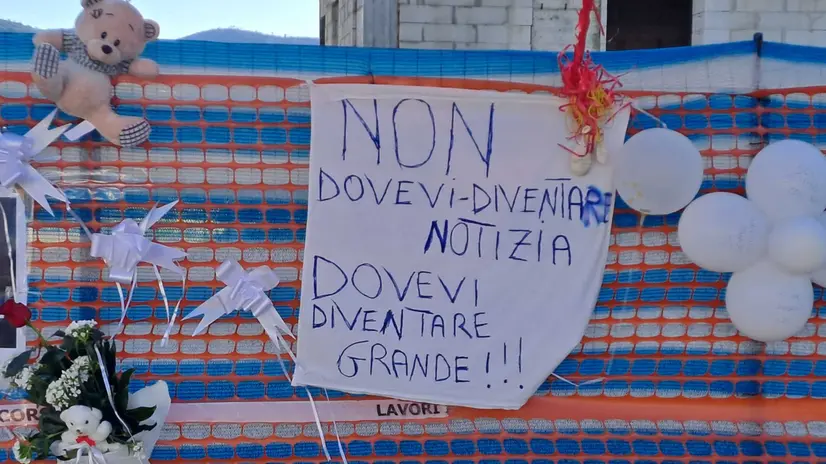 NON
DOVEVI-DIVENTARE
NOTIZIA
DOVEVI
DIVENTARE
GRANDE!!!
LAVORI